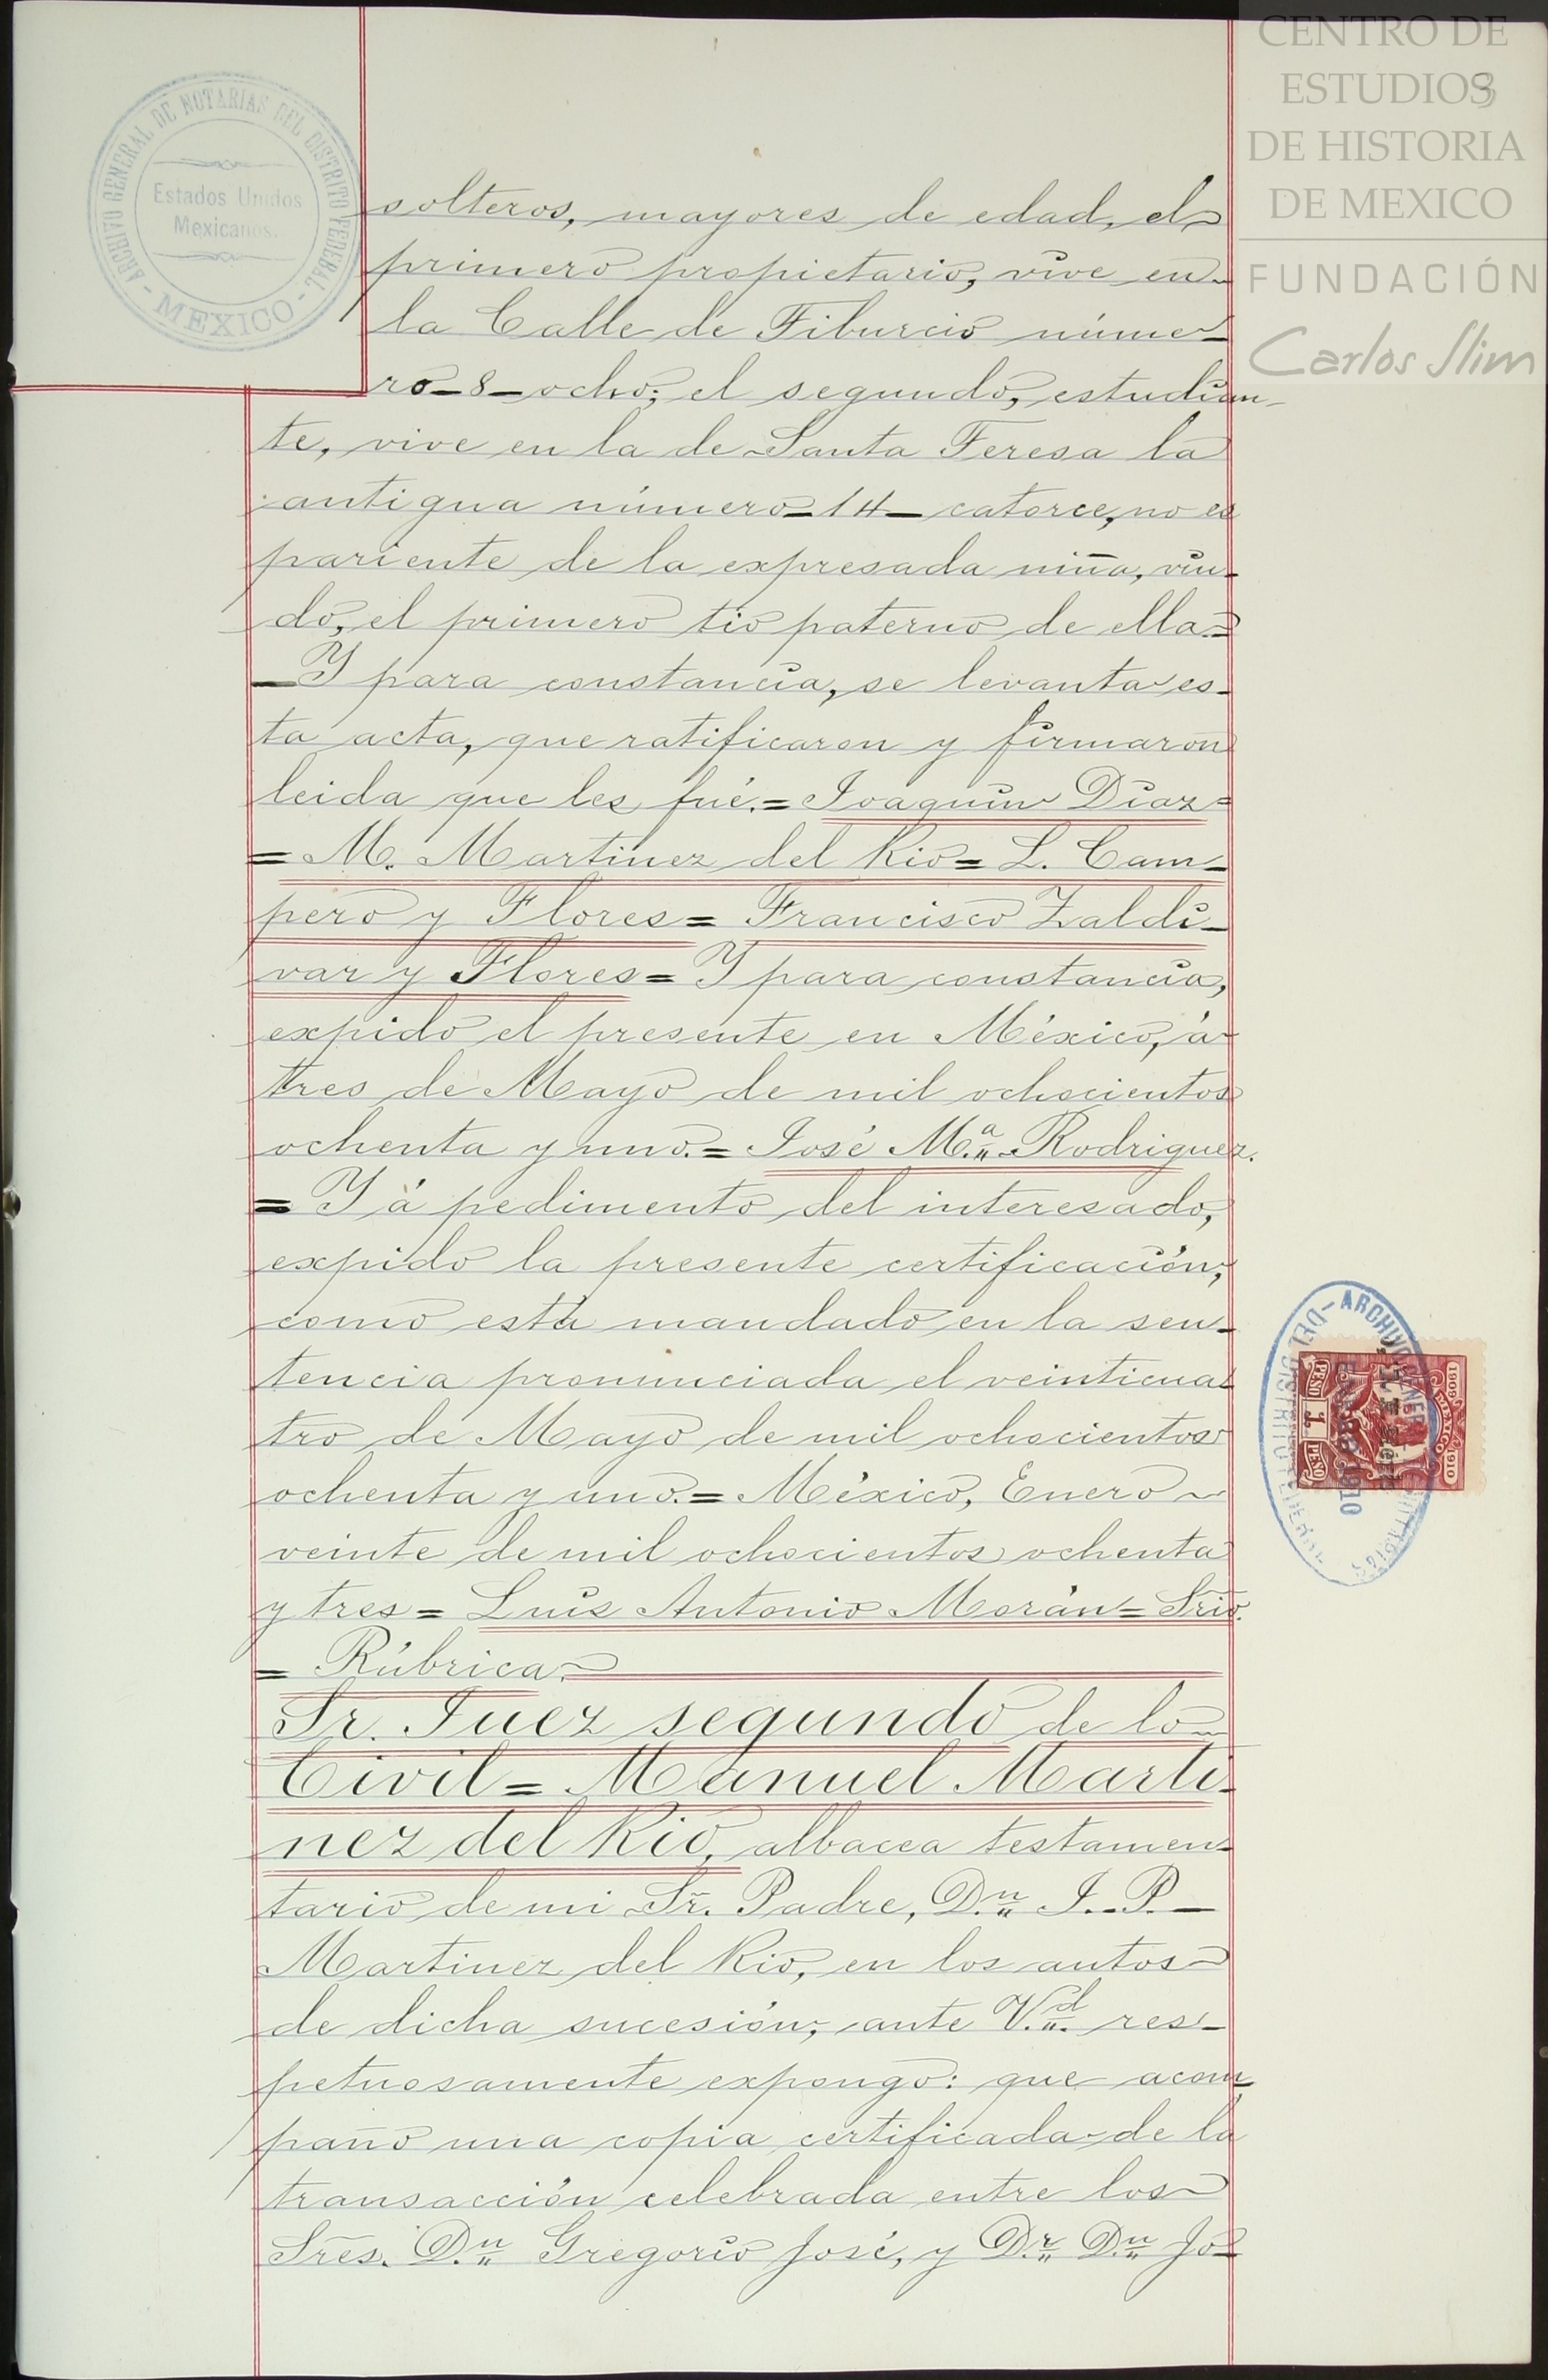 CENTRO DE
ESTUDIOS
3
DE HISTORIA
DE MEXICO
FUNDACIÓN
Carlos Slim
ARCHIVO GENERAL DE NOTARIAS DEL DISTRITO FEDERAL - MEXICO -
Estados Unidos
Mexicanos.
solteros, mayores de edad, el
primero propietario, vive en
la Calle de Tiburcio núme-
ro - 8 - ocho; el segundo, estudian-
te, vive en la de Santa Teresa la
antigua número - 14 - catorce, no es
pariente de la expresada niña, viu-
do, el primero tio paterno de ella =
- Y para constancia, se levanta es-
ta acta, que ratificaron y firmaron
leida que les fué. = Joaquin Diaz =
= M. Martinez del Rio = L. Cam-
pero y Flores = Francisco Zaldi-
var y Flores = Y para constancia,
expido el presente en México, á
tres de Mayo de mil ochocientos
ochenta y uno. = José M.ª Rodriguez.
= Y á pedimento del interesado,
expido la presente certificación,
como está mandado en la sen-
tencia pronunciada el veinticua-
tro de Mayo de mil ochocientos
ochenta y uno. = México, Enero
veinte de mil ochocientos ochenta
y tres = Luis Antonio Morán = Srio.
= Rúbrica.
Sr. Juez segundo de lo
Civil = Manuel Marti-
nez del Rio, albacea testamen-
tario de mi Sr. Padre, D.n J. P.
Martinez del Rio, en los autos
de dicha sucesión, ante V.d res-
petuosamente expongo: que acom-
paño una copia certificada de la
transacción celebrada entre los
Sres. D.n Gregorio José, y D.r D.n Jo-
ARCHIVO GENERAL
DEL DISTRITO FEDERAL
1909 MEXICO 1910
PESO 1 PESO
1910